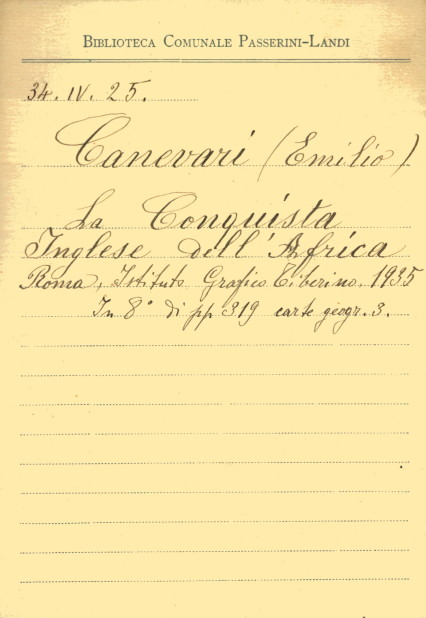 BIBLIOTECA COMUNALE PASSERINI-LANDI
34. IV. 25.
Canevari (Emilio)
La Conquista
Inglese dell'Africa
Roma, Istituto Grafico Tiberino. 1935
In 8° di pp 319 carte geogr. 3.